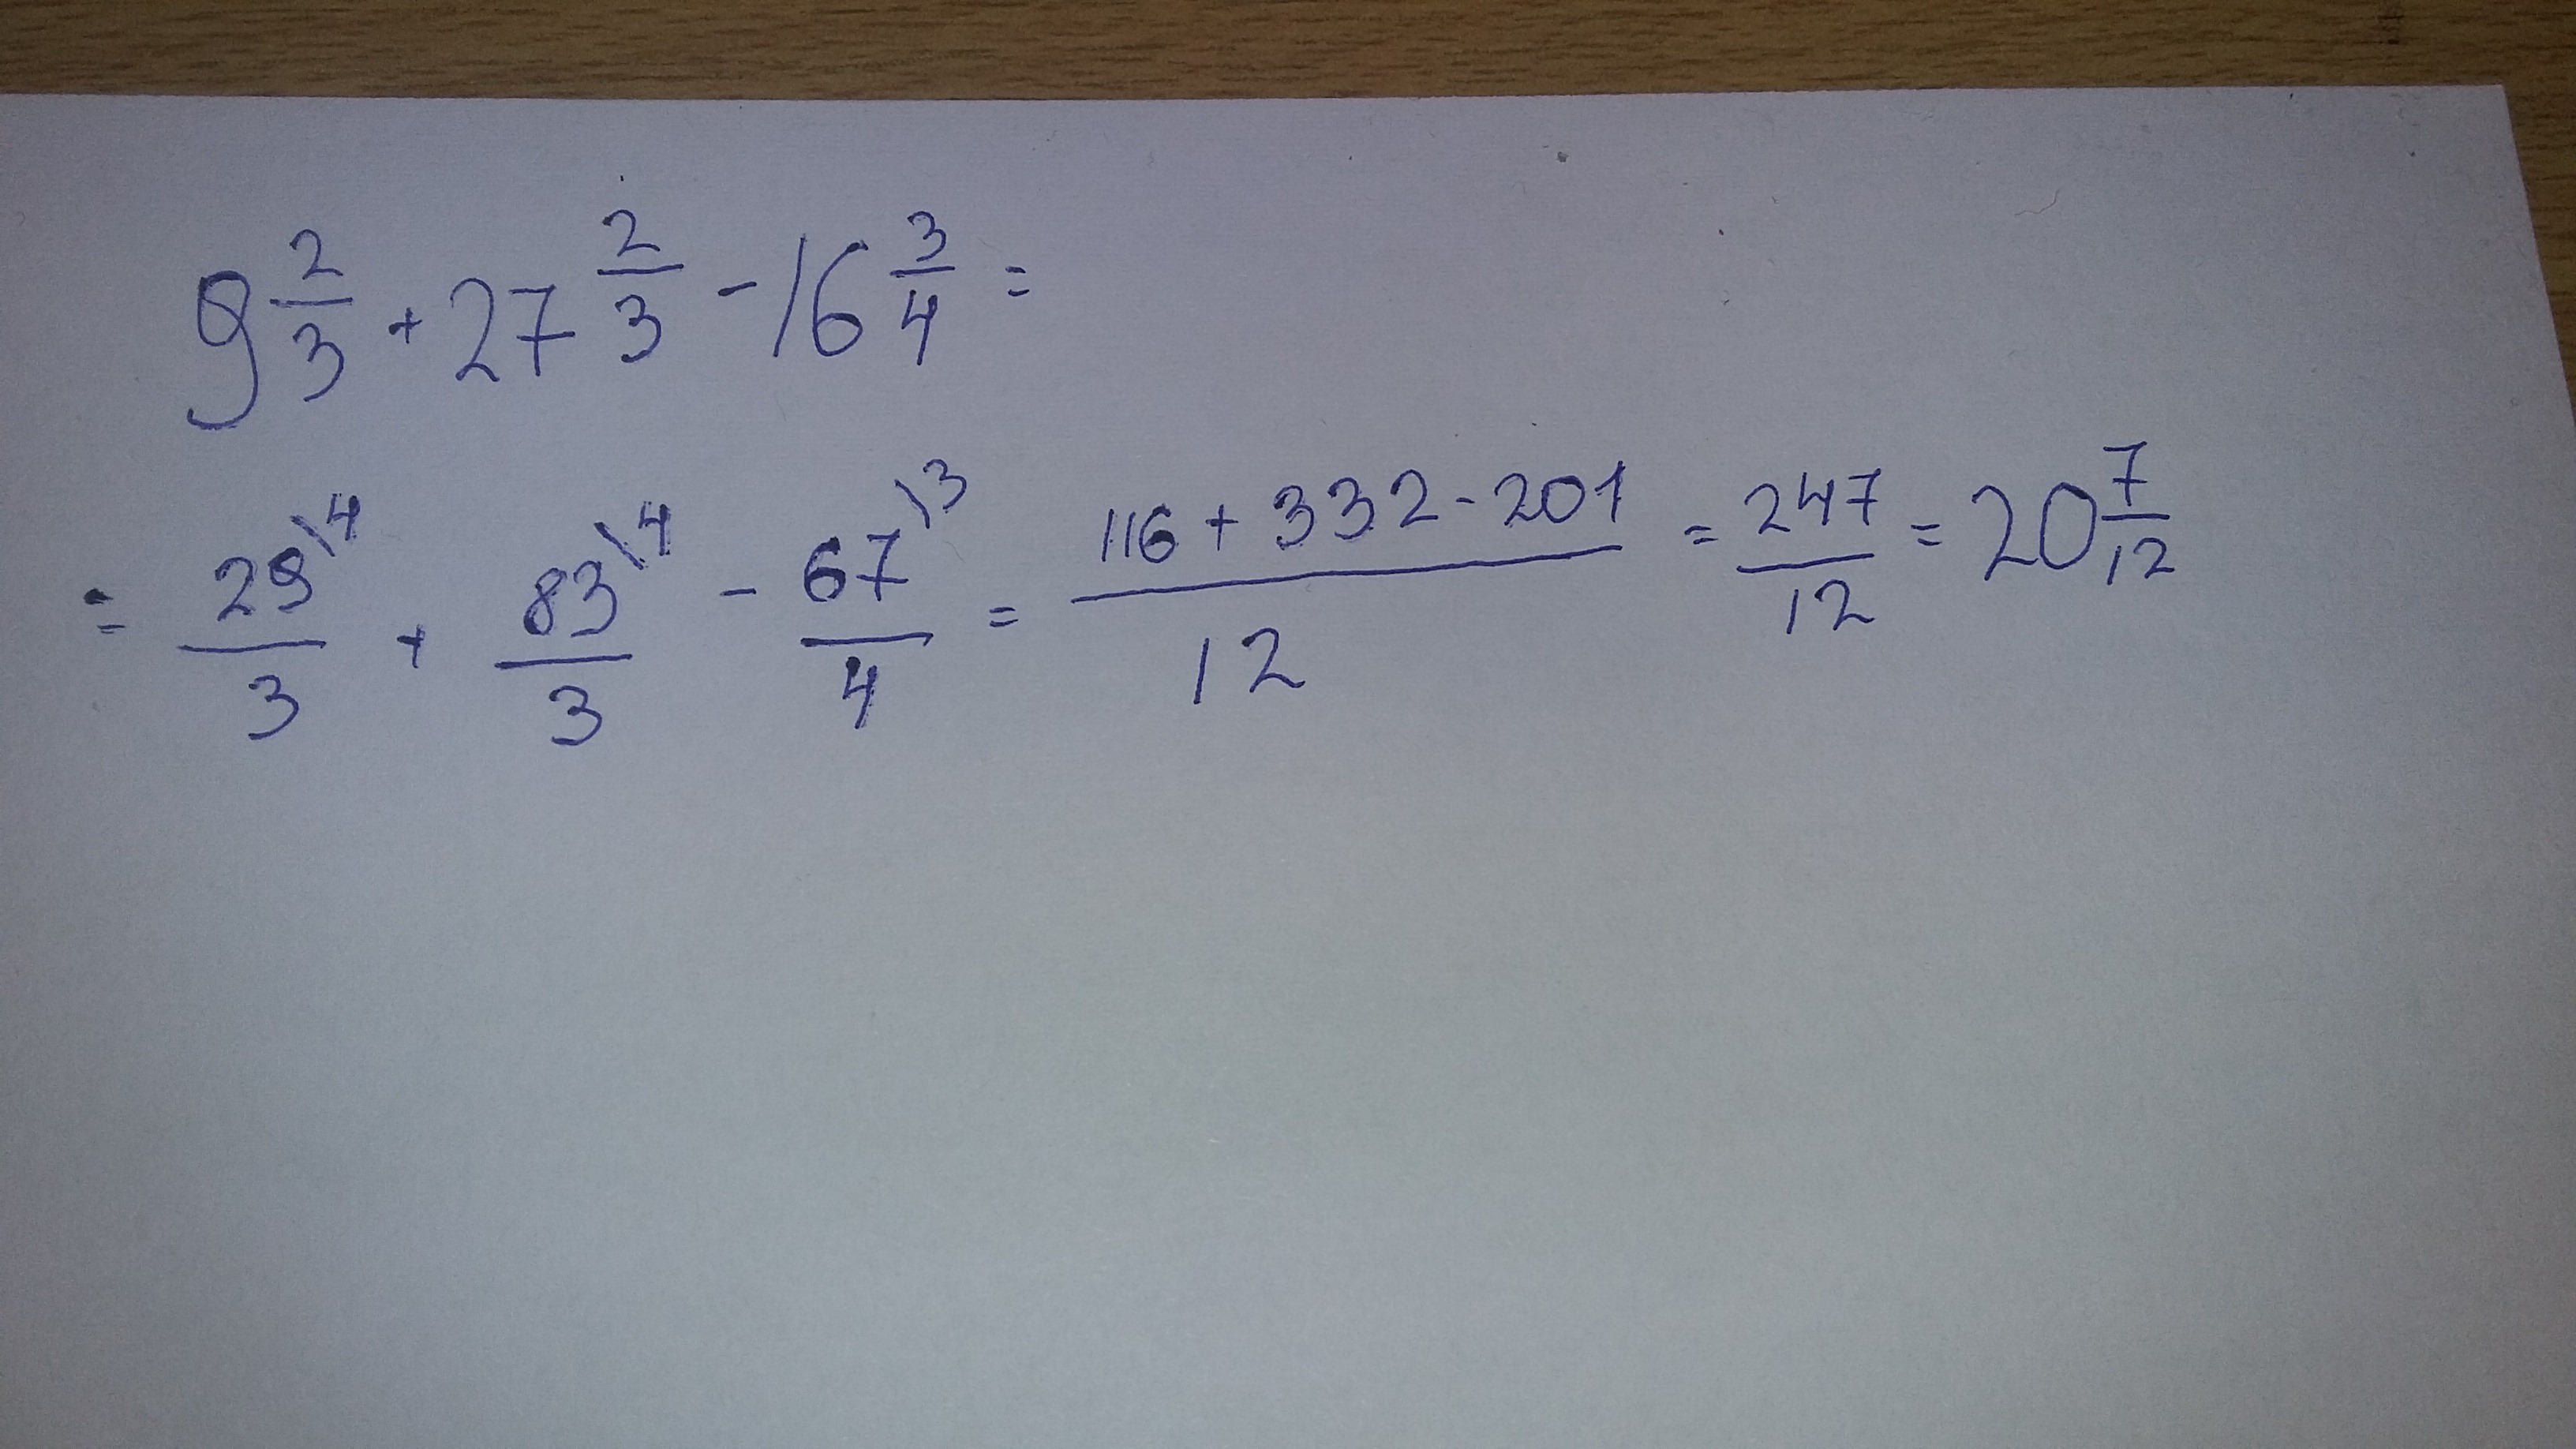 9 2/3 + 27 2/3 - 16 3/4 =
= 29\4/3 + 83\4/3 - 67\3/4 = 116 + 332 - 201/12 = 247/12 = 20 7/12